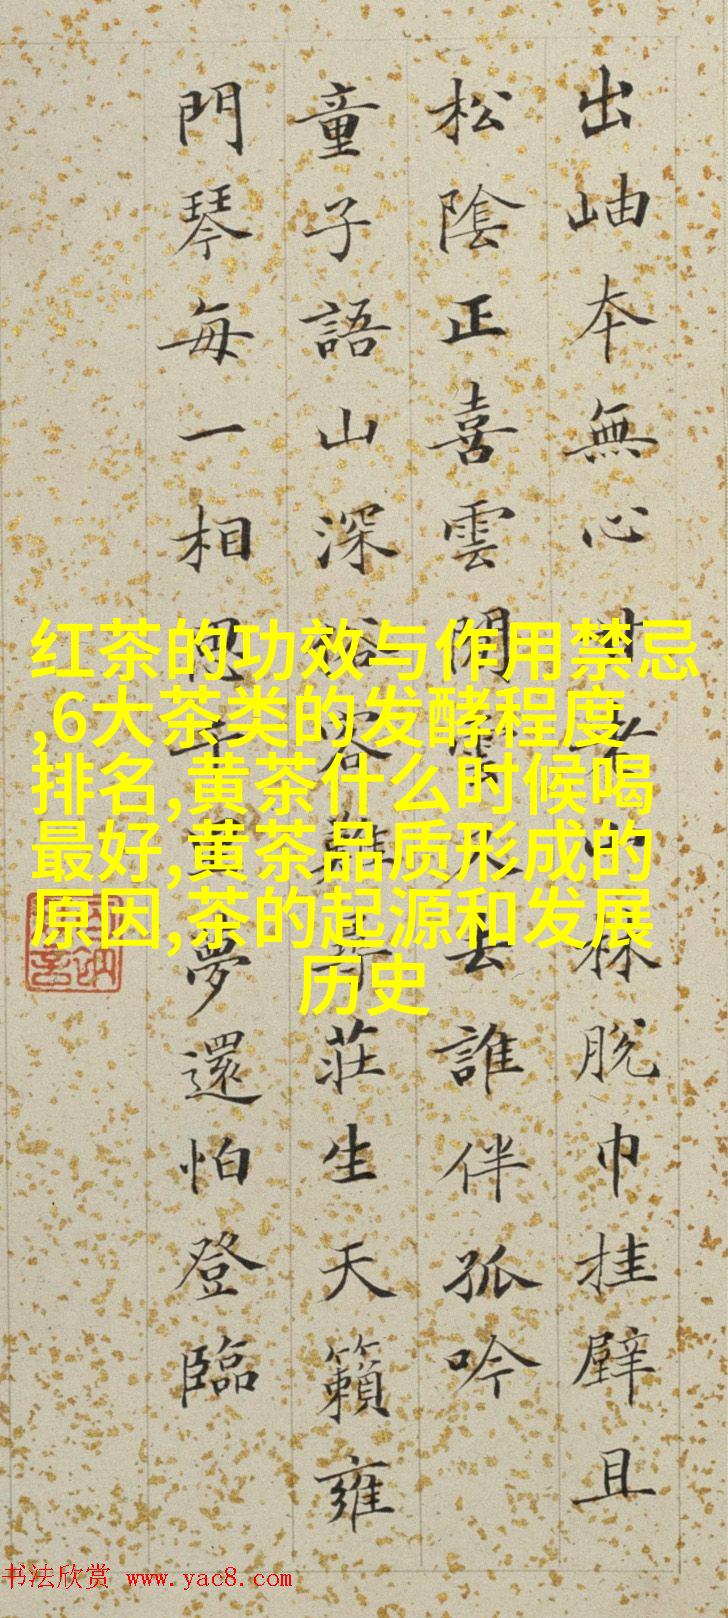 出岫本無心甘老中林脫巾挂壁且
松陰正喜雲閒雲又去誰伴孤吟
童子語山深俗客難尋莊生天籟雍
門琴每一相思千里夢還怕登臨
红茶的功效与作用禁忌
,6大茶类的发酵程度
排名,黄茶什么时候喝
最好,黄茶品质形成的
原因,茶的起源和发展
历史
书法欣赏 www.yac8.com